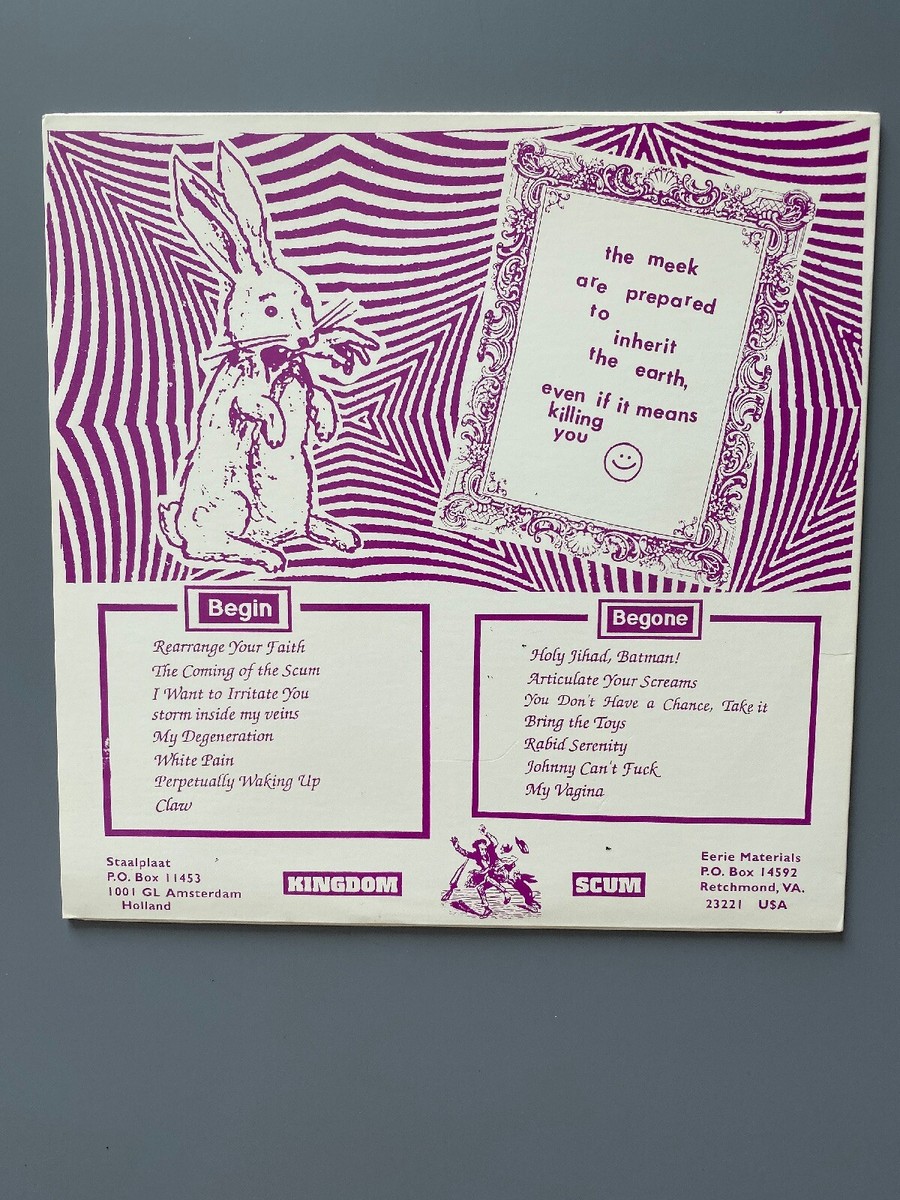 the meek
are prepared
to
inherit
the earth,
even if it means
killing
you
Begin
Rearrange Your Faith
The Coming of the Scum
I Want to Irritate You
storm inside my veins
My Degeneration
White Pain
Perpetually Waking Up
Claw
Begone
Holy Jihad, Batman!
Articulate Your Screams
You Don't Have a Chance, Take it
Bring the Toys
Rabid Serenity
Johnny Can't Fuck
My Vagina
Staalplaat
P.O. Box 11453
1001 GL Amsterdam
Holland
KINGDOM
SCUM
Eerie Materials
P.O. Box 14592
Retchmond, VA.
23221 U$A